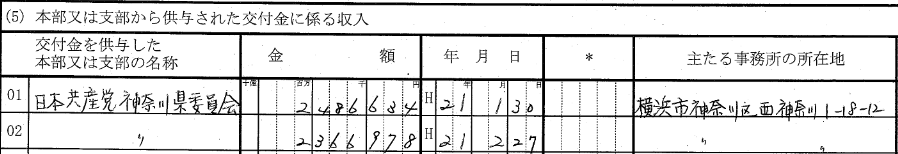 (5) 本部又は支部から供与された交付金に係る収入
交付金を供与した
本部又は支部の名称
金 額
年 月 日
*
主たる事務所の所在地
十億 百万 千 円 年 月 日
01 日本共産党神奈川県委員会 2486634 H 21 1 30 横浜市神奈川区西神奈川1-18-12
02 〃 2366978 H 21 2 27 〃 〃